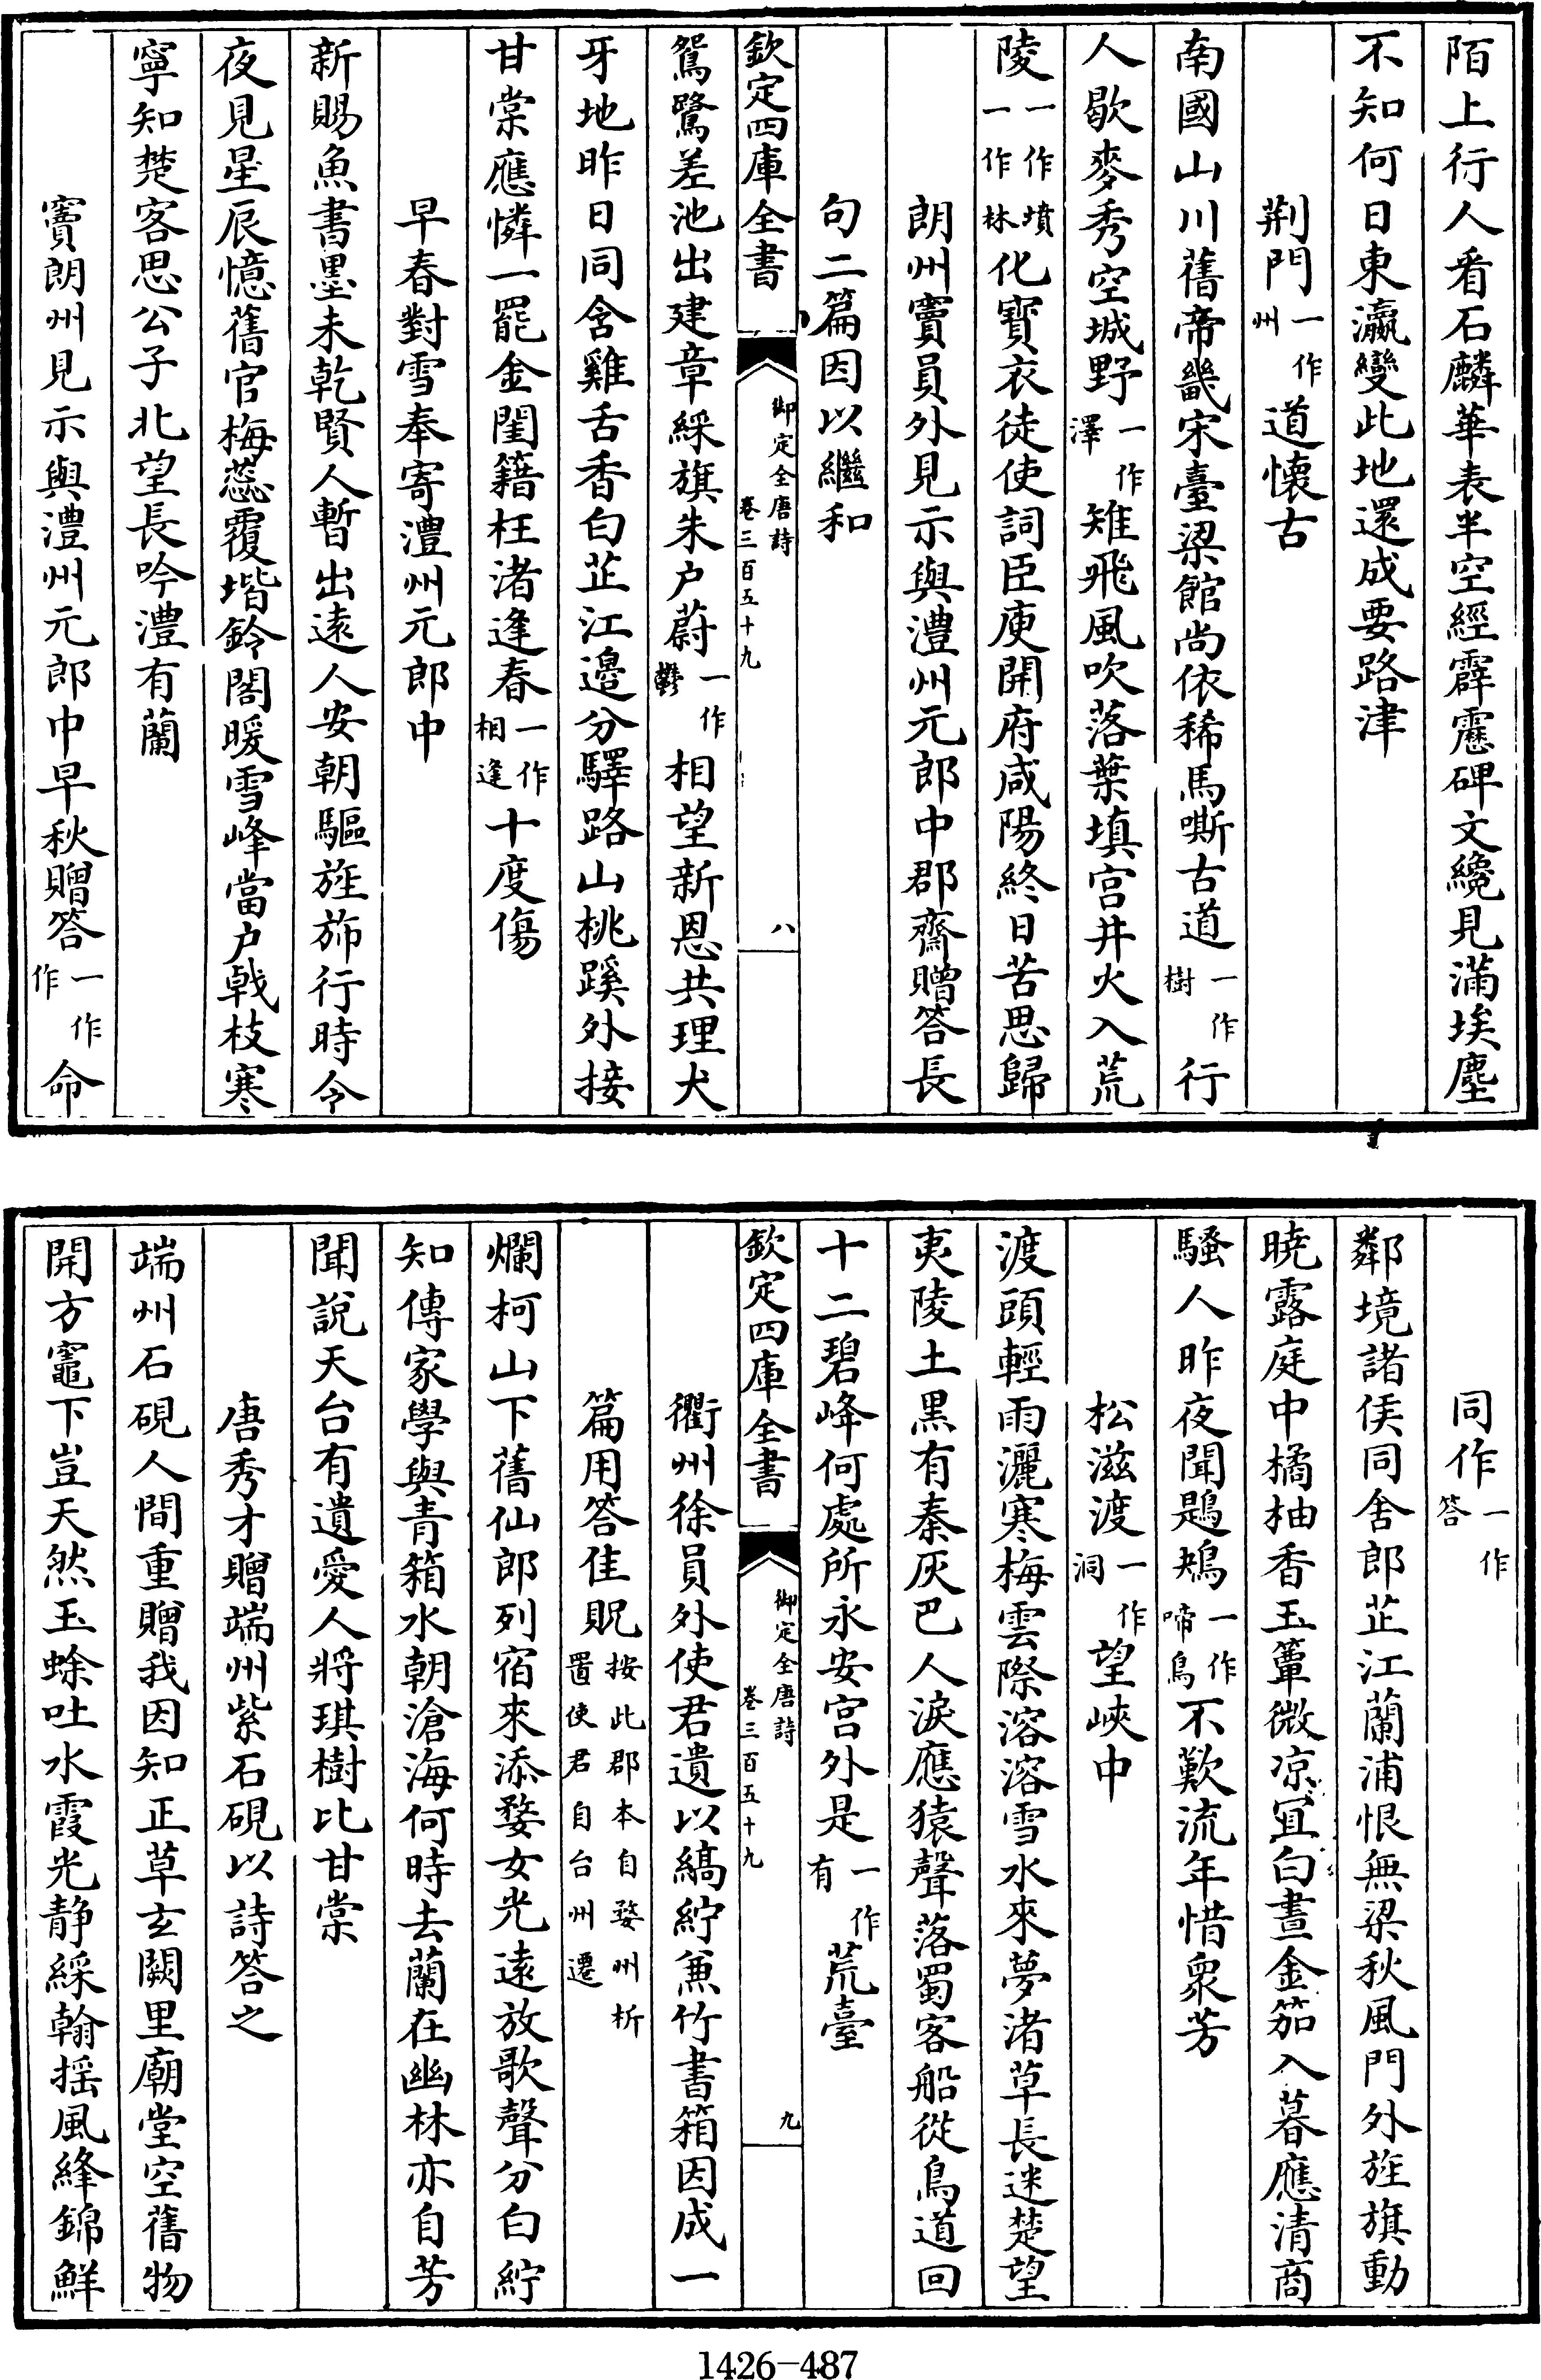 陌上行人看石麟華表半空經霹靂碑文纔見滿埃塵
不知何日東瀛變此地還成要路津
荆門一作州道懷古
南國山川舊帝畿宋臺梁館尚依稀馬嘶古道一作樹行
人歇麥秀空城野一作澤雉飛風吹落葉填宮井火入荒
陵一作墳一作林化寶衣徒使詞臣庾開府咸陽終日苦思歸
朗州竇員外見示與澧州元郎中郡齋贈答長
句二篇因以繼和
欽定四庫全書
御定全唐詩
卷三百五十九
八
鴛鷺差池出建章綵旗朱户蔚一作鬱相望新恩共理犬
牙地昨日同含雞舌香白芷江邉分驛路山桃蹊外接
甘棠應憐一罷金閨籍枉渚逢春一作相逢十度傷
早春對雪奉寄澧州元郎中
新賜魚書墨未乾賢人暫出逺人安朝驅旌斾行時令
夜見星辰憶舊官梅蕊覆堦鈴閤暖雪峰當户戟枝寒
寧知楚客思公子北望長吟澧有蘭
竇朗州見示與澧州元郎中早秋贈答一作作命
同作一作答
鄰境諸侯同舍郎芷江蘭浦恨無梁秋風門外旌旗動
曉露庭中橘柚香玉簟微凉宜白晝金笳入暮應清商
騷人昨夜聞鶗鴂一作啼鳥不歎流年惜衆芳
松滋渡一作洞望峽中
渡頭輕雨灑寒梅雲際溶溶雪水來夢渚草長迷楚望
夷陵土黒有秦灰巴人淚應猿聲落蜀客船從鳥道回
十二碧峰何處所永安宮外是一作有荒臺
欽定四庫全書
御定全唐詩
卷三百五十九
九
衢州徐員外使君遺以縞紵兼竹書箱因成一
篇用答佳貺按此郡本自婺州析置使君自台州遷
爛柯山下舊仙郎列宿來添婺女光逺放歌聲分白紵
知傳家學與青箱水朝滄海何時去蘭在幽林亦自芳
聞説天台有遺愛人將琪樹比甘棠
唐秀才贈端州紫石硯以詩答之
端州石硯人間重贈我因知正草玄闕里廟堂空舊物
開方竈下豈天然玉蜍吐水霞光静綵翰揺風絳錦鮮
1426-487